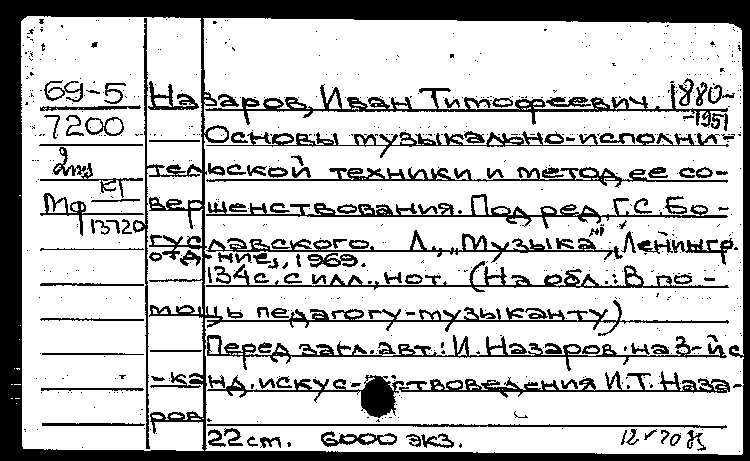 69-5 Назаров, Иван Тимофеевич. 1880-
-1951
7200 Основы музыкально-исполни-
2 тельской техники и метод ее со-
Мф КГ 13720 вершенствования. Под ред. Г.С. Бо-
гуславского. Л., „Музыка", Ленингр.
отд-ние, 1969.
134 с. с илл., нот. (На обл.: В по-
мощь педагогу-музыканту)
Перед загл. авт.: И. Назаров; на 3-й с
-канд. искус-ствоведения И.Т. Наза-
ров.
22 см. 6000 экз.